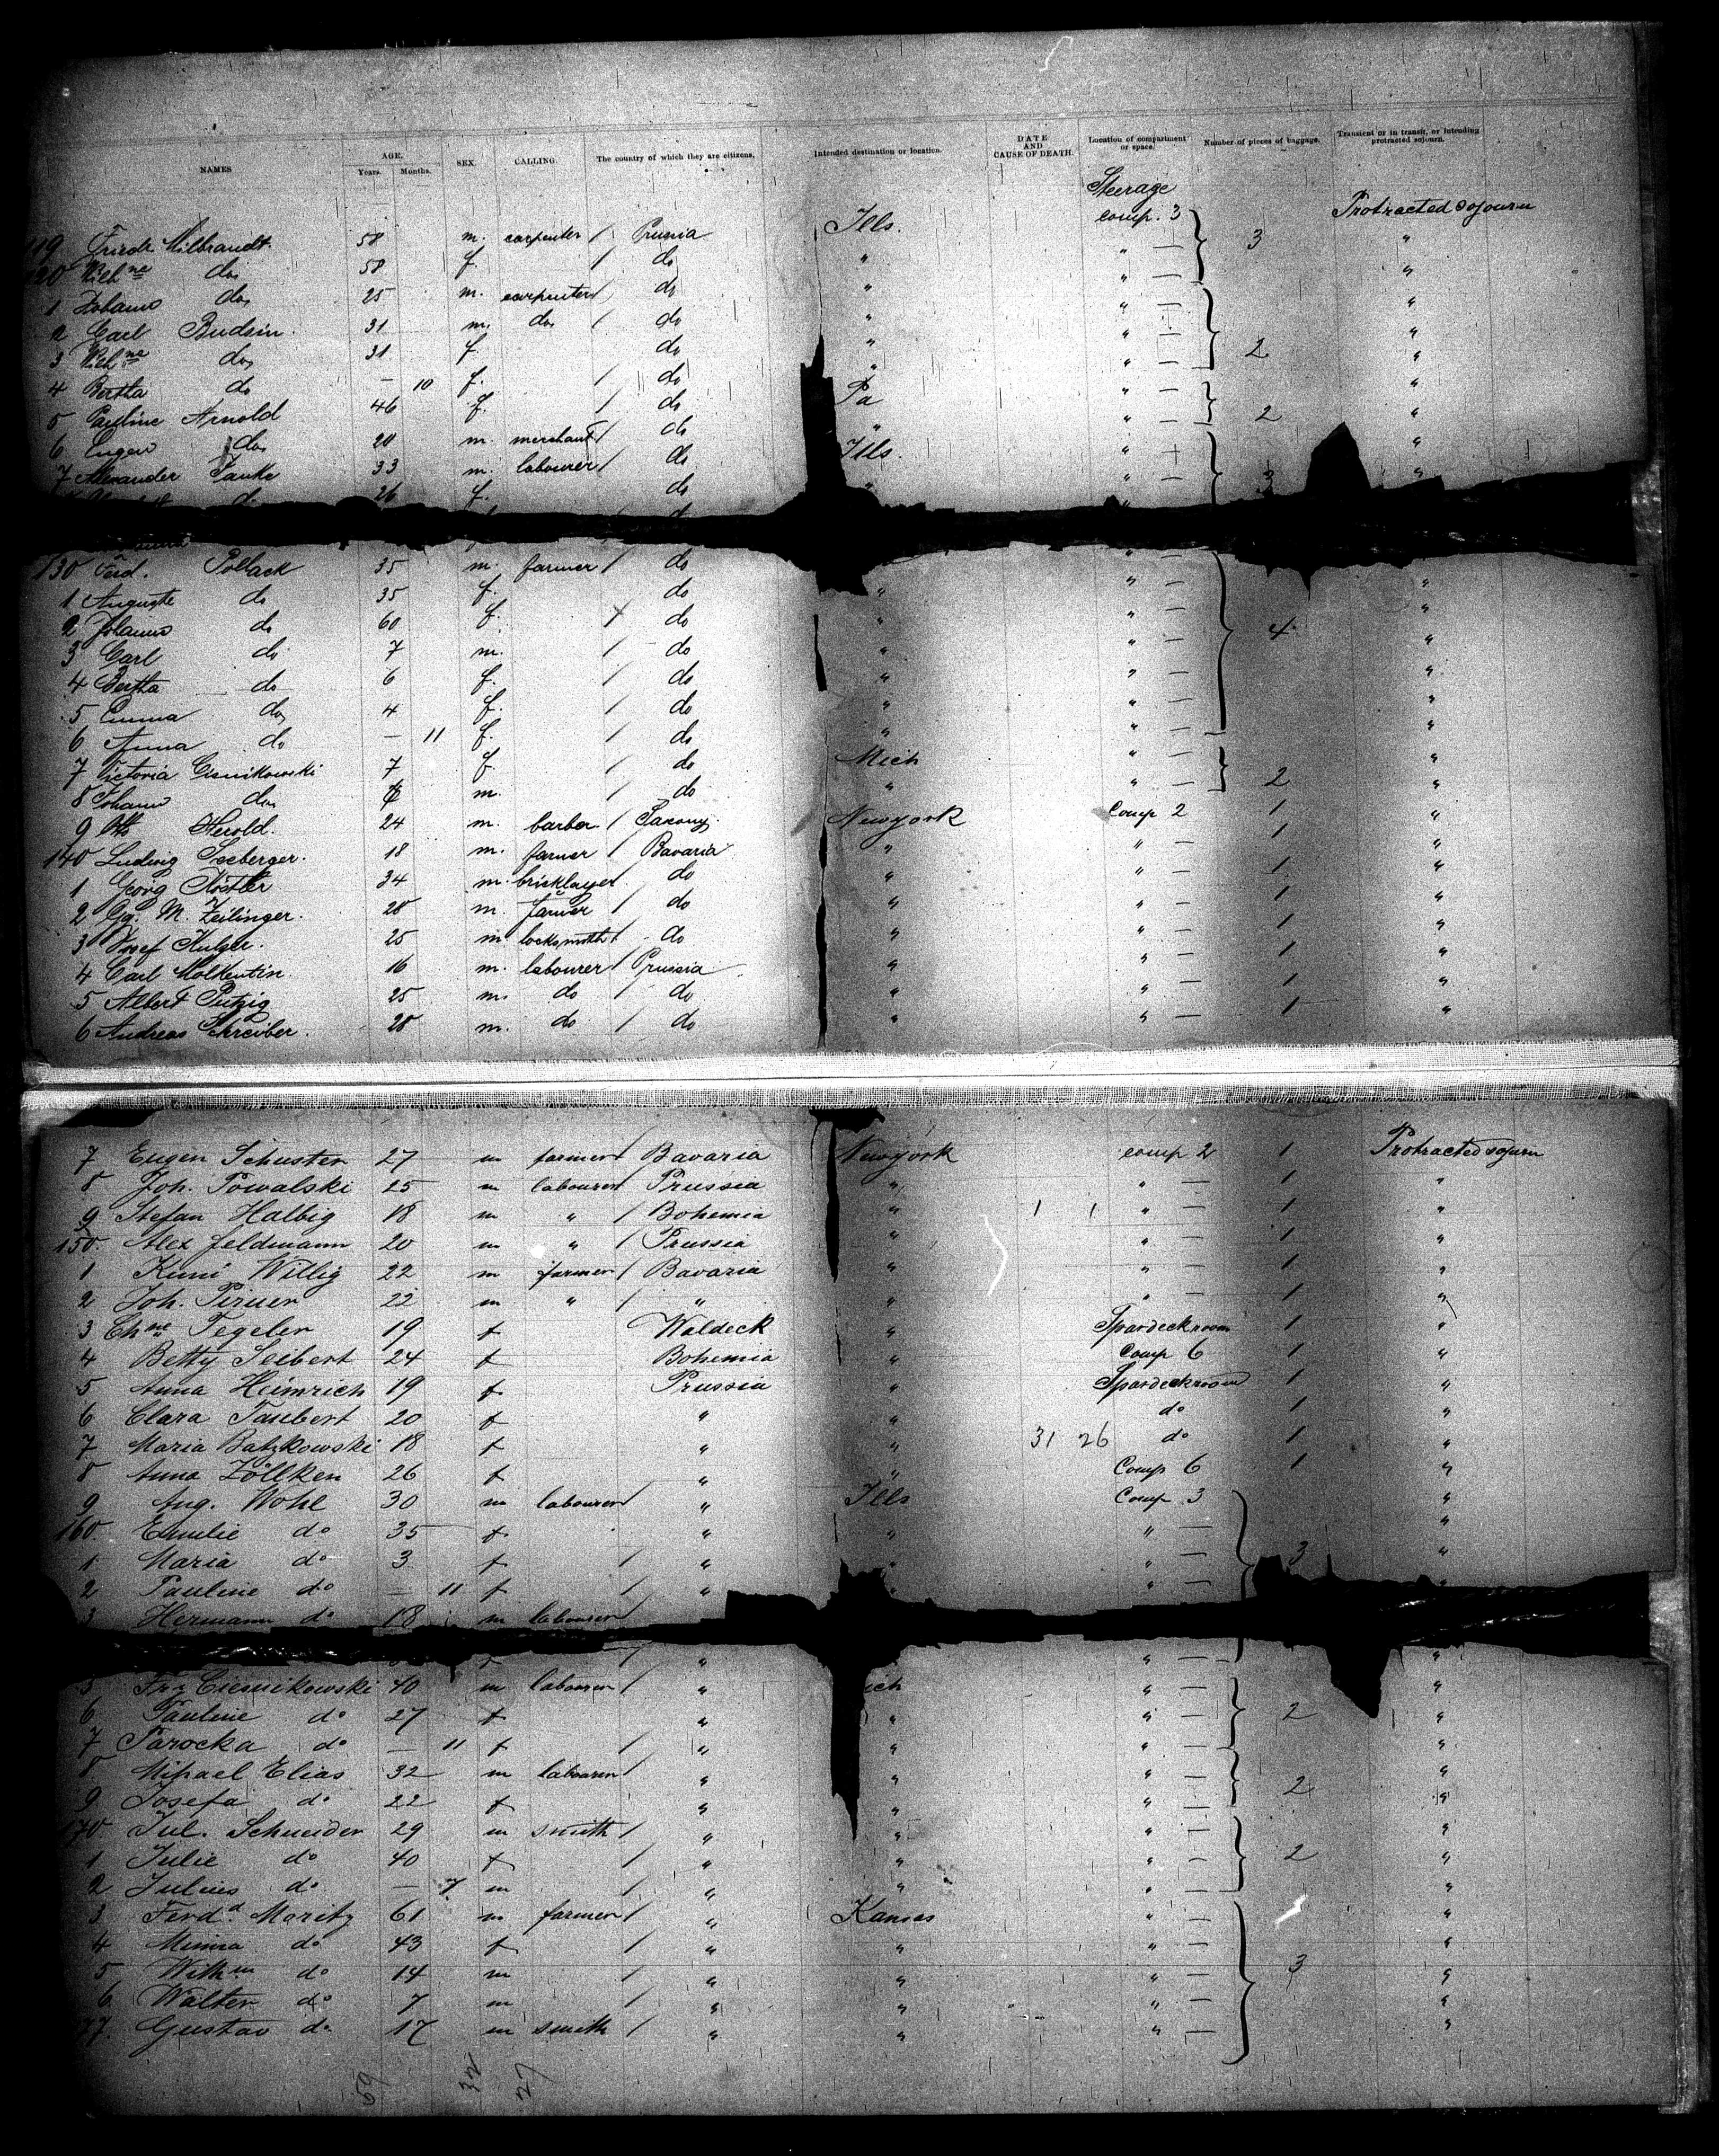 NAMES AGE. Years. Months. SEX. CALLING. The country of which they are citizens. Intended destination or location. DATE AND CAUSE OF DEATH. Location of compartment or space. Number of pieces of baggage. Transient or in transit, or intending protracted sojourn.
Steerage
119 Friedr. Milbrandt 58 m. carpenter / Prussia Ills. comp. 3 3 Protracted sojourn
120 Wilhne do 58 f. / do " " — "
1 Johann do 25 m. carpenter / do " " — "
2 Carl Budzin 31 m. do / do " " — "
3 Wilhne do 31 f. do " " — 2 "
4 Bertha do — 10 f. / do " " — "
5 Pauline Arnold 46 f. / do Pa " — 2 "
6 Eugen do 20 m. merchant / do " " — "
7 Alexander Janke 33 m. labourer / do Ills. " 3 "
do 26 f. do " "
130 Ferd. Pollack 35 m. farmer / do " — "
1 Auguste do 35 f. do " " — "
2 Johanna do 60 f. do " " — 4 "
3 Carl do 7 m. / do " " — "
4 Bertha do 6 f. / do " " — "
5 Emma do 4 f. / do " " — "
6 Anna do — 11 f. / do " " — "
7 Victoria Cisnikowski 7 f. / do Mich " — 2 "
8 Johann do m. / do " " — "
9 Otto Herold. 24 m. barber / Saxony. Newyork Comp 2 1 "
140 Ludwig Seeberger. 18 m. farmer / Bavaria " " — 1 "
1 Georg Köstler 34 m. bricklayer do " " — 1 "
2 Gg. M. Zeilinger. 28 m. farmer / do " " — 1 "
3 Josef 25 m locksmith / do " " — 1 "
4 Carl Molkentin 16 m. labourer / Prussia " " — 1 "
5 Albert Putzig 25 m. do / do " " — 1 "
6 Andreas Schreiber. 28 m. do / do " " — 1 "
7 Eugen Schuster 27 m farmer / Bavaria Newyork comp 2 1 Protracted sojourn
8 Joh. Powalski 25 m labourer / Prussia " " — 1 "
9 Stefan Halbig 18 m " / Bohemia " 1 1 " — 1 "
150. Alex Feldmann 20 m " / Prussia " " — 1 "
1 Kuni Willig 22 m farmer / Bavaria " " — 1 "
2 Joh. Pirner 22 m " / " " " — 1 "
3 Chne Tegeler 19 f Waldeck " Spardeckroom 1 "
4 Betty Seibert 24 f Bohemia " Comp 6 1 "
5 Anna Heimrich 19 f Prussia " Spardeckroom 1 "
6 Clara Taubert 20 f " " do 1 "
7 Maria Batzkowski 18 f " " 31 26 do 1 "
8 Anna Zöllken 26 f " " Comp 6 1 "
9 Aug. Wohl 30 m labourer / " Ills Comp 3 "
160 Emilie do 35 f " " " — "
1 Maria do 3 f / " " — 3 "
2 Pauline do — 11 f / " " —
3 Hermann do 18 m labourer
" " — "
5 Frz Ciesnikowski 40 m labourer / " ich " — "
6 Pauline do 27 f " " " — 2 "
7 Parocka do — 11 f / " " " — "
8 Mihael Elias 32 m labourer / " " " — 2 "
9 Josefa do 22 f " " " — "
170 Jul. Schneider 29 m smith / " " " — "
1 Julie do 40 f / " " " — 2 "
2 Julius do — 7 m / " " " — "
3 Ferdd. Moritz 61 m farmer / " Kansas " — "
4 Minna do 43 f / " " " — "
5 Wilhm do 14 m / " " " — 3 "
6 Walter do 7 m / " " " — "
77 Gustav do 17 m smith / " " " — "
59 32 27